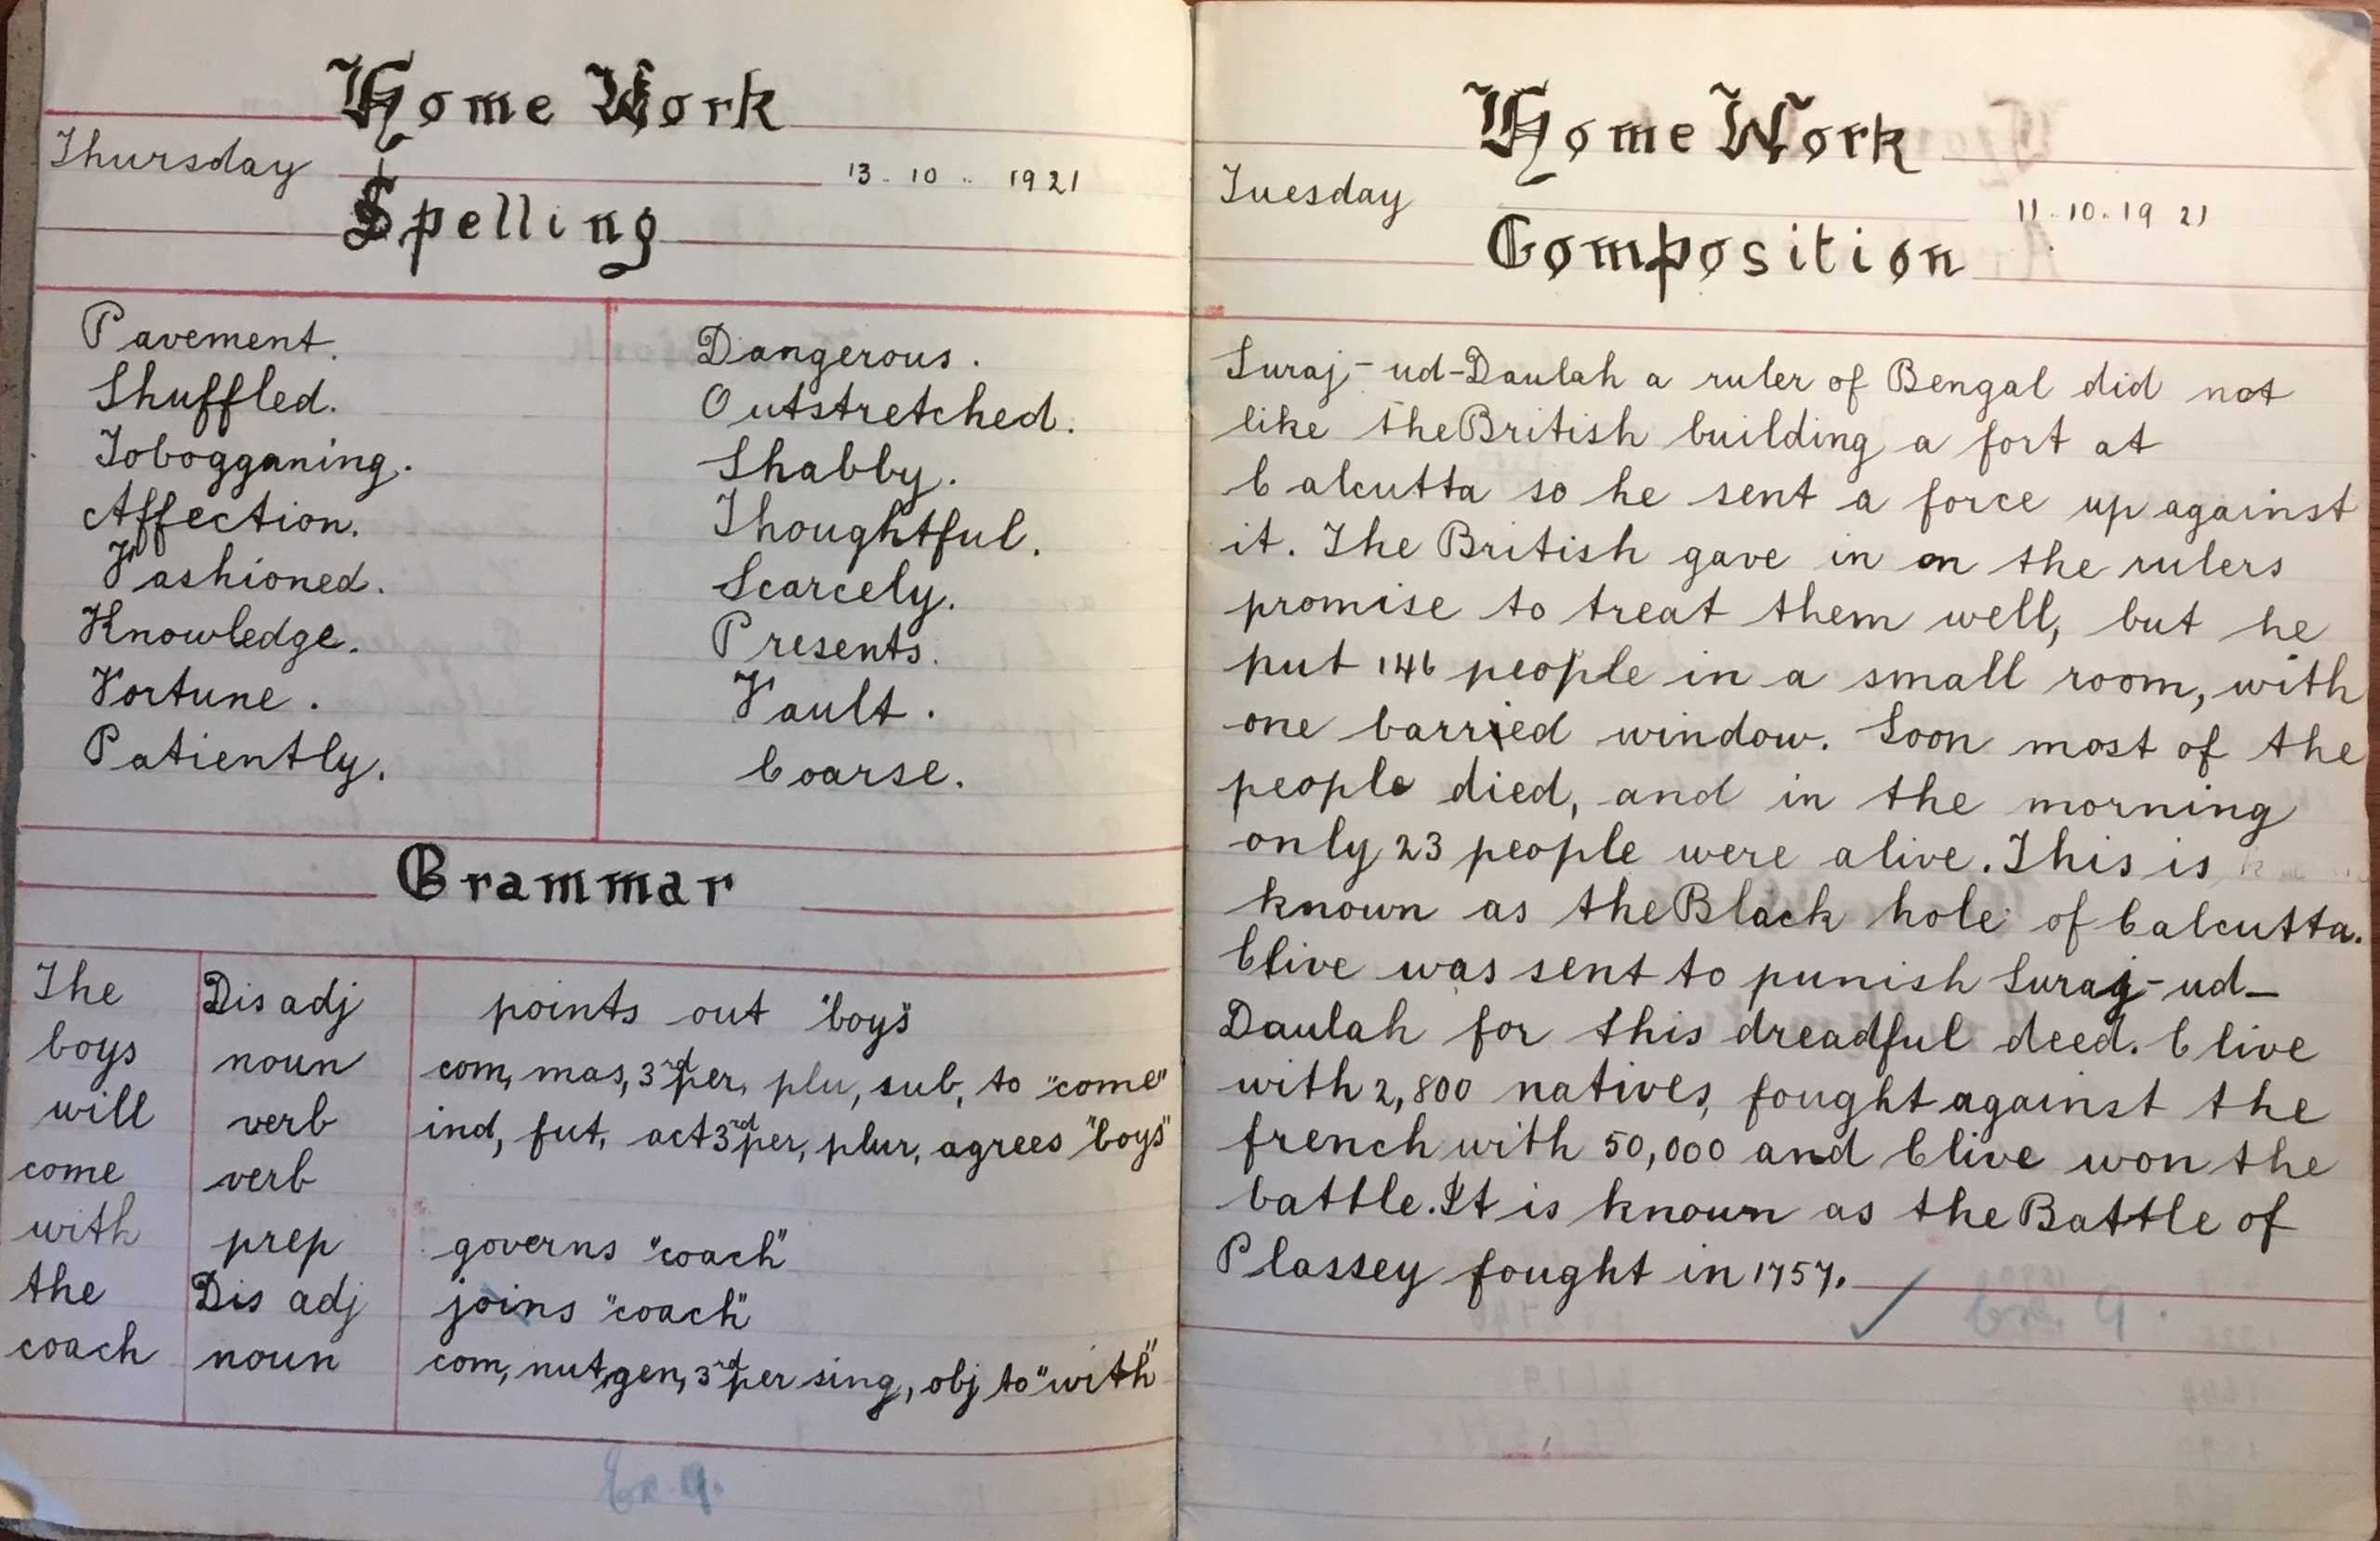 Home Work
Thursday 13.10.1921
Spelling
Pavement.
Shuffled.
Tobogganing.
Affection.
Fashioned.
Knowledge.
Fortune.
Patiently.
Dangerous.
Outstretched.
Shabby.
Thoughtful.
Scarcely.
Presents.
Vault.
Coarse.
Grammar
The Dis adj points out "boys"
boys noun com, mas, 3rd per, plu, sub, to "come"
will verb ind, fut, act 3rd per, plur, agrees "boys"
come verb
with prep governs "coach"
the Dis adj joins "coach"
coach noun com, nut, gen, 3rd per sing, obj to "with"
9.
Home Work
Tuesday 11.10.1921
Composition
Suraj-ud-Daulah a ruler of Bengal did not
like the British building a fort at
Calcutta so he sent a force up against
it. The British gave in on the rulers
promise to treat them well, but he
put 146 people in a small room, with
one barried window. Soon most of the
people died, and in the morning
only 23 people were alive. This is
known as the Black hole of Calcutta.
Clive was sent to punish Suraj-ud-
Daulah for this dreadful deed. Clive
with 2,800 natives, fought against the
french with 50,000 and Clive won the
battle. It is known as the Battle of
Plassey fought in 1757.
9.